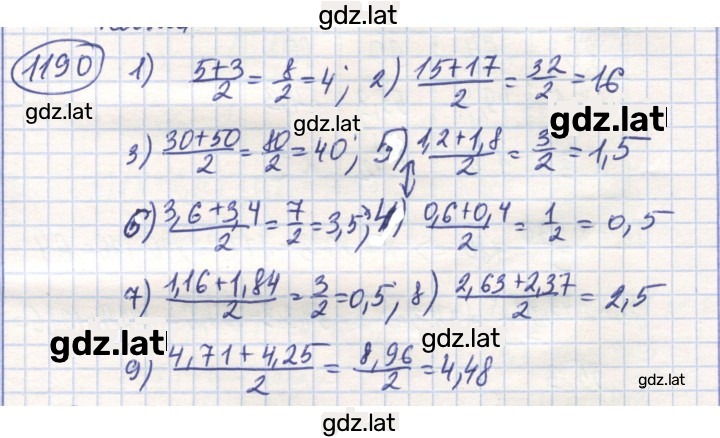 gdz.lat
1190 1) (5+3)/2 = 8/2 = 4; 2) (15+17)/2 = 32/2 = 16
gdz.lat gdz.lat gdz.lat
3) (30+50)/2 = 80/2 = 40; 5) (1,2+1,8)/2 = 3/2 = 1,5
6) (3,6+3,4)/2 = 7/2 = 3,5; 4) (0,6+0,4)/2 = 1/2 = 0,5
7) (1,16+1,84)/2 = 3/2 = 0,5; 8) (2,63+2,37)/2 = 2,5
gdz.lat gdz.lat
9) (4,71+4,25)/2 = 8,96/2 = 4,48
gdz.lat
gdz.lat